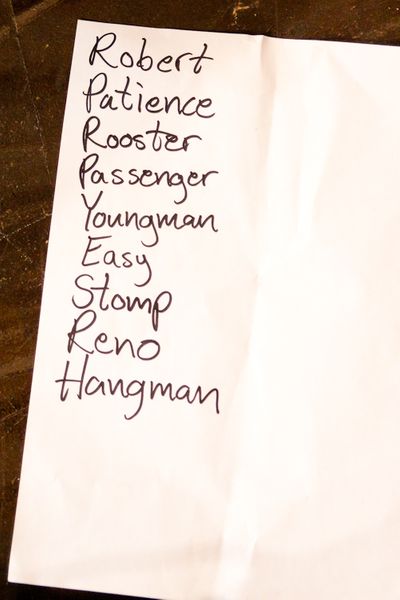 Robert
Patience
Rooster
Passenger
Youngman
Easy
Stomp
Reno
Hangman